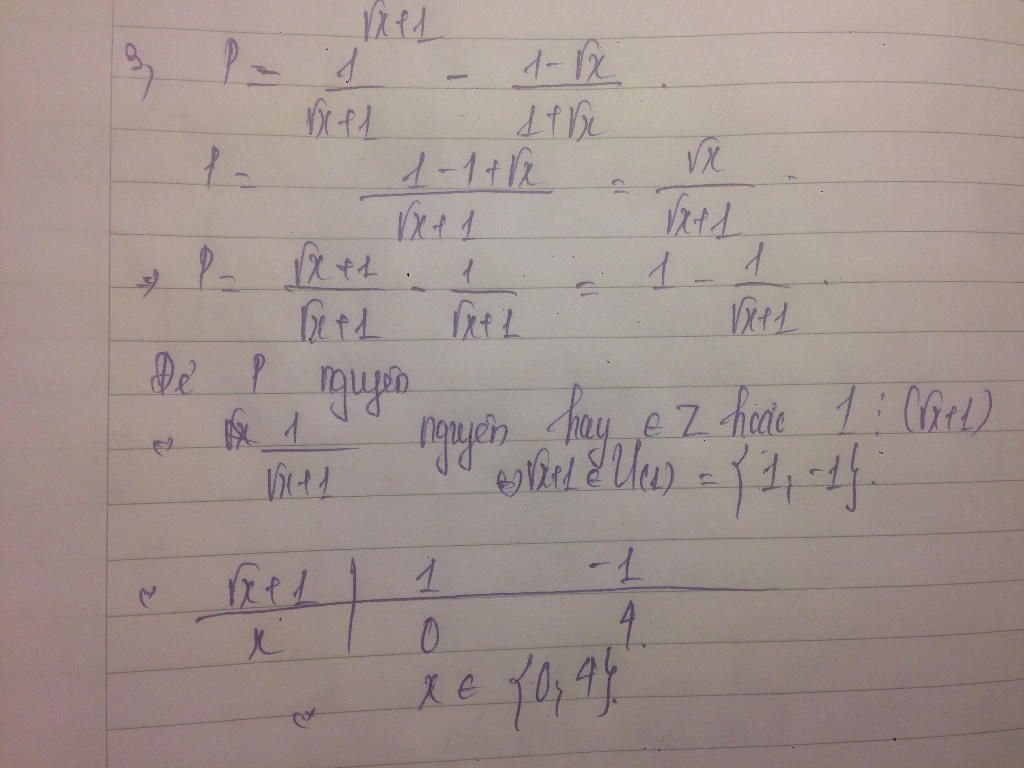 √x+1
3, P = 1/(√x+1) - (1-√x)/(1+√x) .
P = (1-1+√x)/(√x+1) = √x/(√x+1) .
=> P = (√x+1)/(√x+1) - 1/(√x+1) = 1 - 1/(√x+1) .
Để P nguyên
1/(√x+1) nguyên hay ∈ Z hoặc 1 ⋮ (√x+1)
<=> √x+1 ∈ Ư(1) = {1, -1}.
√x+1 | 1 -1
x | 0 4.
x ∈ {0, 4}.